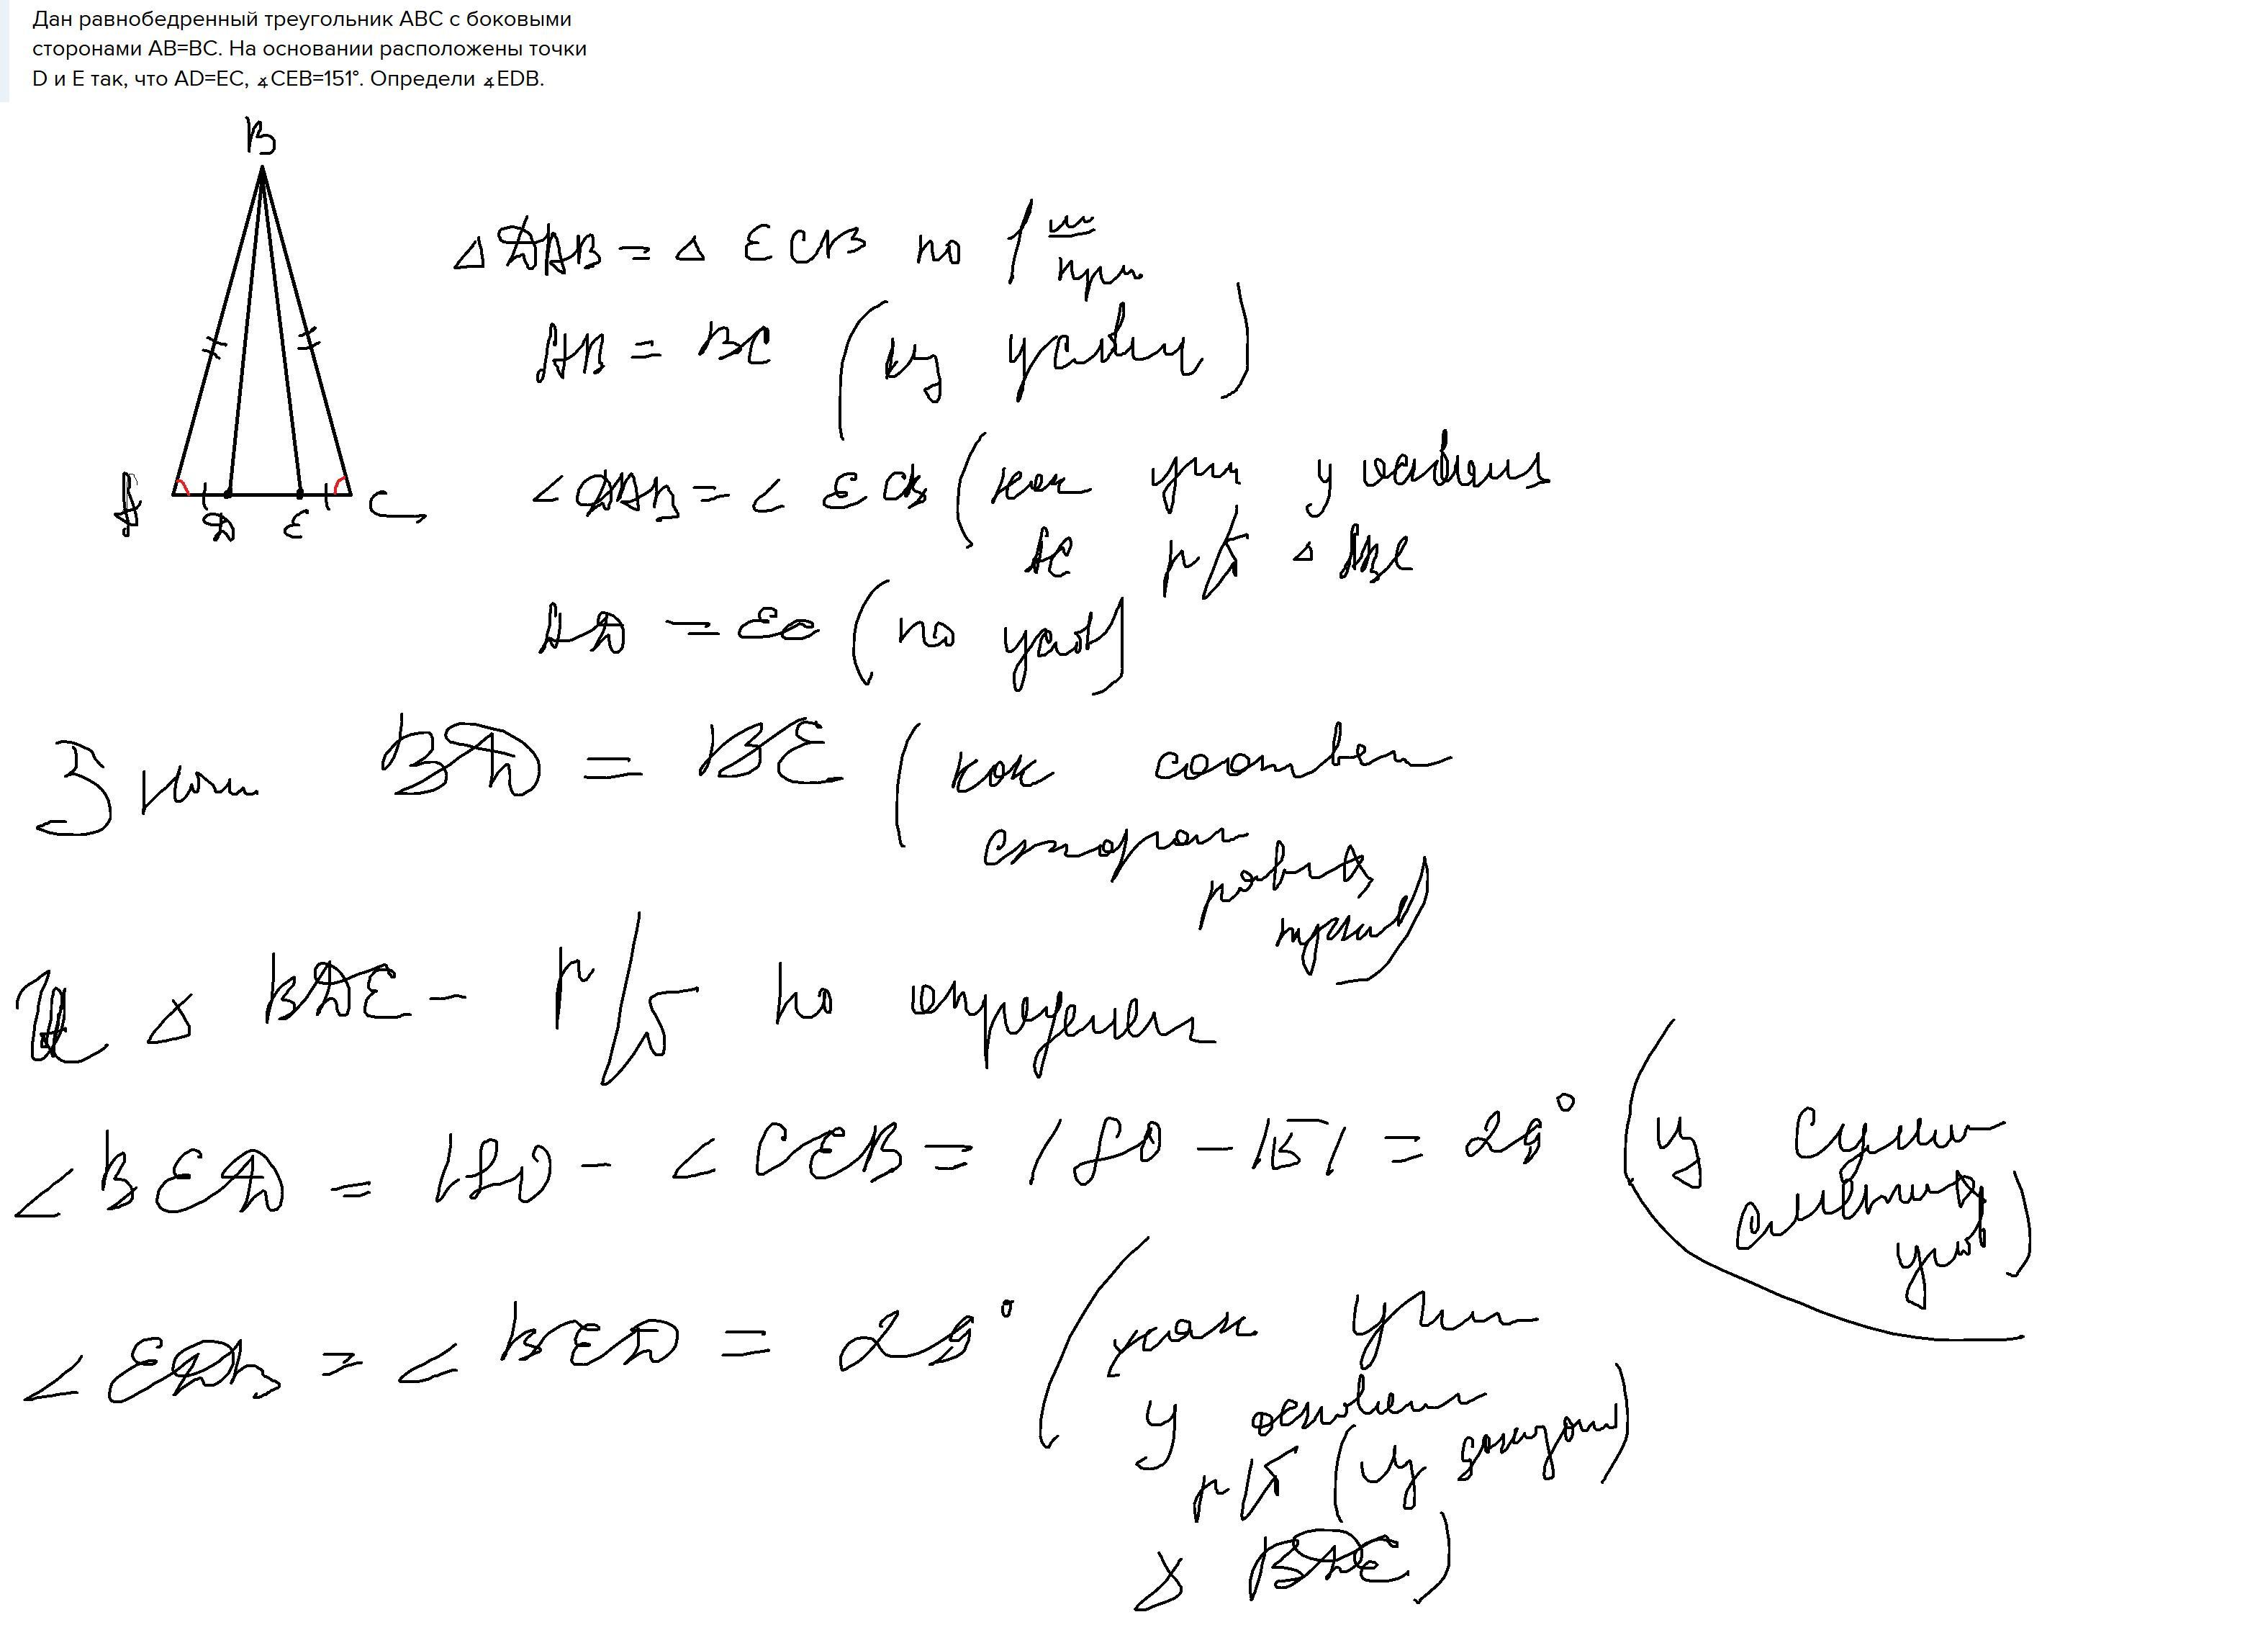 Дан равнобедренный треугольник ABC с боковыми
сторонами AB=BC. На основании расположены точки
D и E так, что AD=EC, ∡CEB=151°. Определи ∡EDB.
B
A
D
E
C
△ DAB = △ ECB по 1
AB = BC (из
∠ DAB = ∠ ECB (как у
AC р/б △ ABC
AD = EC (по услов)
BD = BE (как соответ
сторон
равных
И △ BDE - р/б по определен
∠ BED = 180 - ∠ CEB = 180 - 151 = 29° (из
смежных
∠ EDB = ∠ BED = 29° (как
у основан
р/б (из
△ BDE)